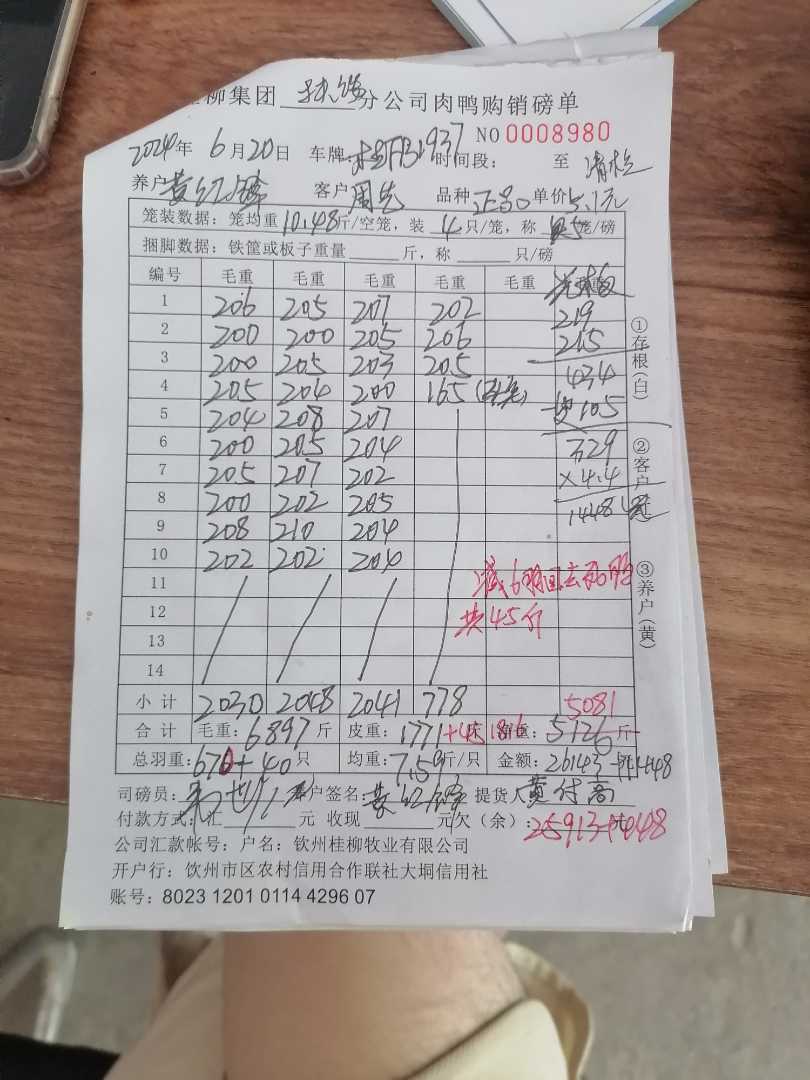 柳集团 分公司肉鸭购销磅单
NO 0008980
2024年 6月20日 车牌 1937 时间段： 至
养户 黄红 客户 周先 品种 正品 单价 5.1元
笼装数据：笼均重 10.48斤/空笼，装 4 只/笼，称 5 笼/磅
捆脚数据：铁筐或板子重量 斤，称 只/磅
编号 毛重 毛重 毛重 毛重 毛重
1 206 205 207 202 219
2 200 200 205 206 215
3 200 205 203 205 434
4 205 204 200 165 105
5 204 208 207
6 200 205 204 329
7 205 207 202 ×4.4
8 200 202 205 1448
9 208 210 204
10 202 202 204
11 减6
12 共45斤
13
14
小计 2030 2048 2041 778 5081
合计 毛重：6897斤 皮重：1771+45 5126斤
总羽重：670+40只 均重：7.59斤/只 金额：26143+1448
司磅员： 户签名：黄红 提货人 黄付高
付款方式：汇 元 收现 元欠（余）：25913+1448
公司汇款帐号：户名：钦州桂柳牧业有限公司
开户行：饮州市区农村信用合作联社大垌信用社
账号：8023 1201 0114 4296 07
①存根(白) ②客户 ③养户(黄)